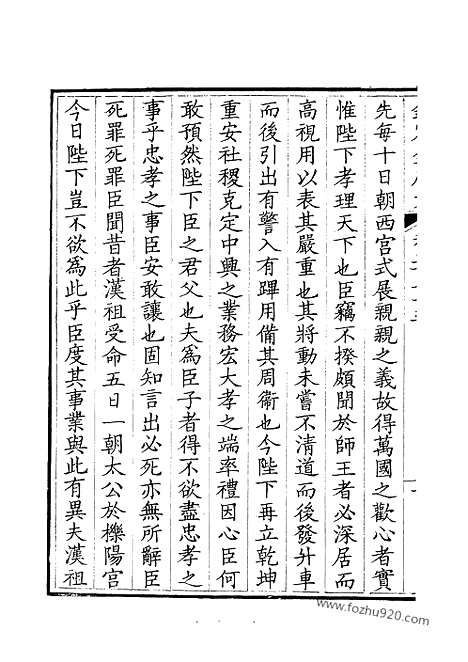 先每十日朝西宮式展親親之義故得萬國之歡心者實
惟陛下孝理天下也臣竊不揆頗聞於師王者必深居而
高視用以表其嚴重也其將動未嘗不清道而後發升車
而後引出有警入有蹕用備其周衛也今陛下再立乾坤
重安社稷克定中興之業務宏大孝之端率禮因心臣何
敢預然陛下臣之君父也夫為臣子者得不欲盡忠孝之
事乎忠孝之事臣安敢讓也固知言出必死亦無所辭臣
死罪死罪臣聞昔者漢祖受命五日一朝太公於櫟陽宮
今日陛下豈不欲為此乎臣度其事業與此有異夫漢祖
www.fozhu920.com